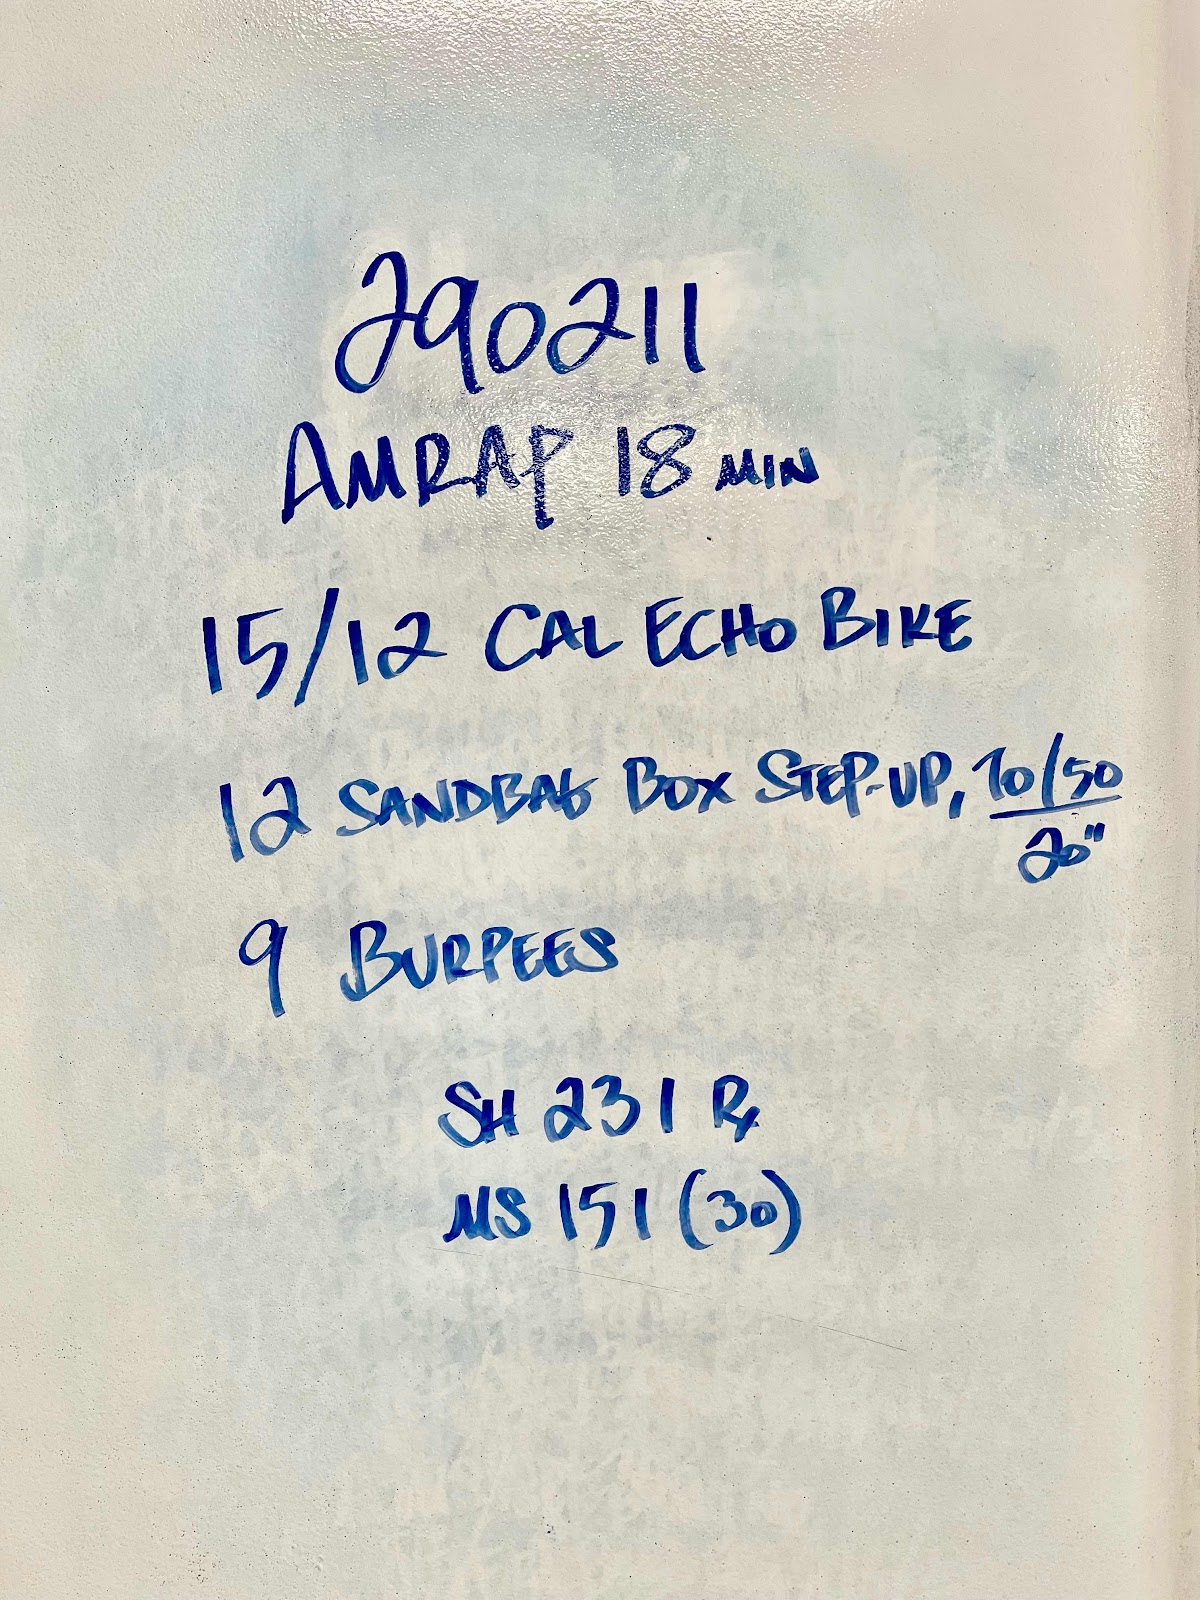 290211
AMRAP 18 MIN
15/12 CAL ECHO BIKE
12 SANDBAG BOX STEP-UP, 70/50
20"
9 BURPEES
SH 231 Rx
MS 151 (30)